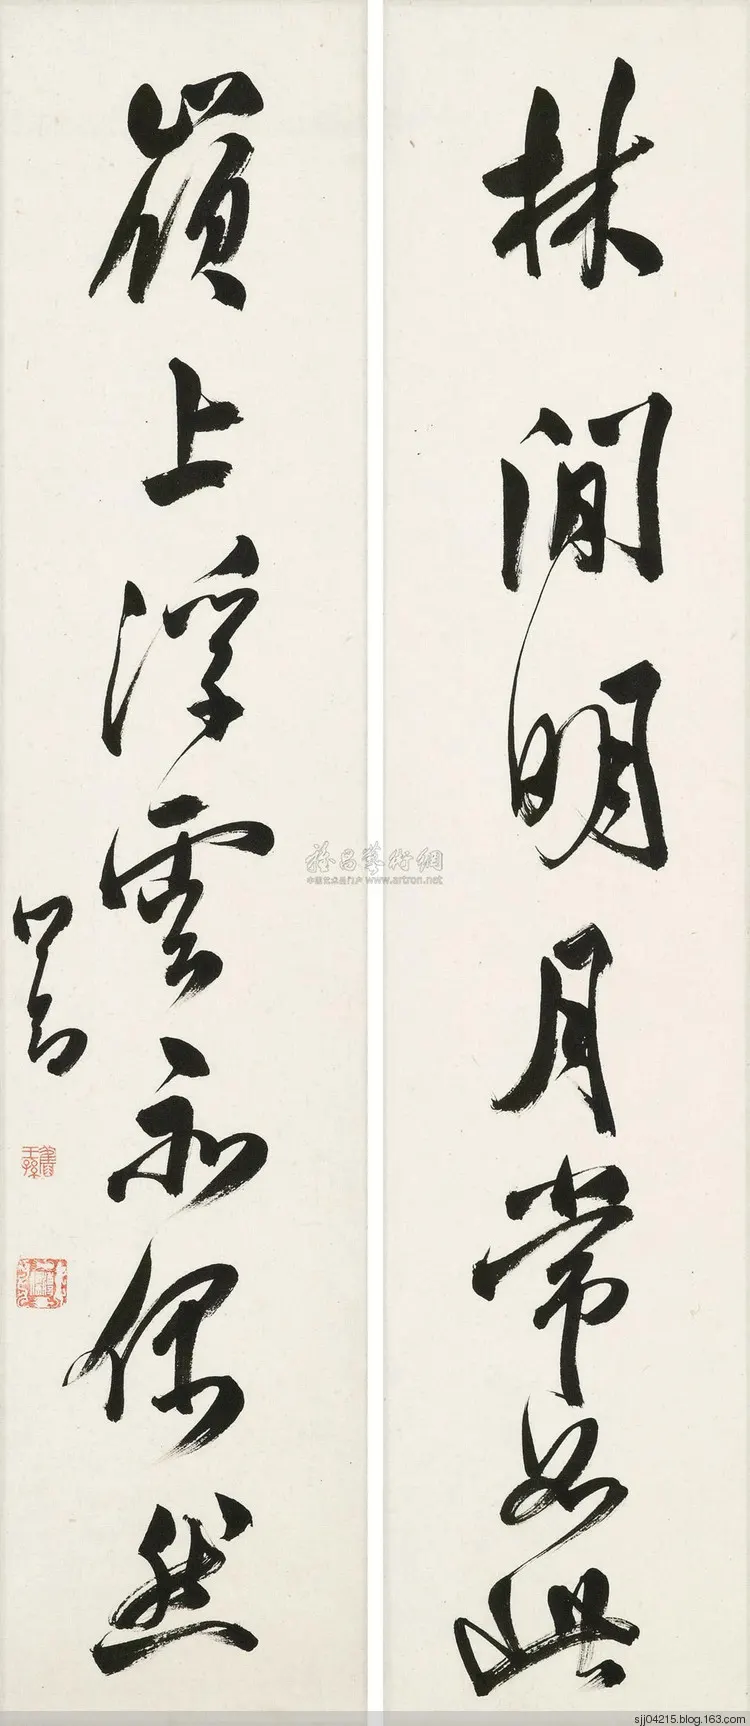 林間明月常如此
嶺上浮雲亦偶然
心畬
舊王孫
雅昌藝術網
www.artron.net
sjj04215.blog.163.com